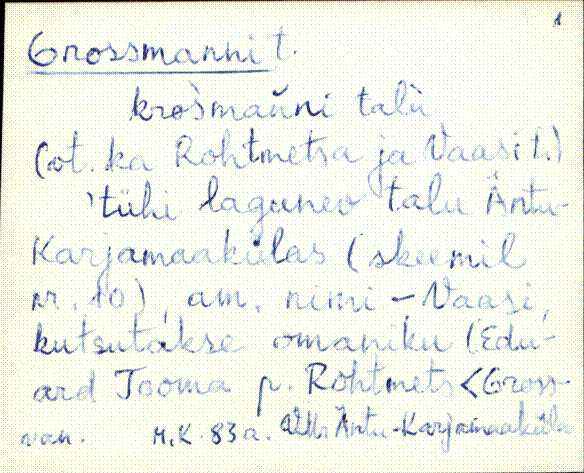 1
Grossmanni t.
krosmanni talu
(vt. ka Rohtmetsa ja Vaasi t.)
'tühi lagunev talu Äntu-
Karjamaakülas (skeemil
nr. 10), am. nimi – Vaasi,
kutsutakse omaniku (Edu-
ard Tooma p. Rohtmets < Gross-
man. M.K. 83 a. VMr Äntu-Karjamaaküla